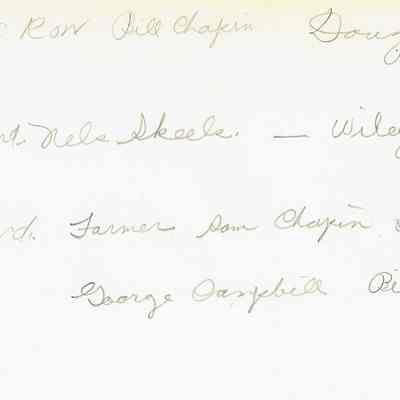 Row Bill Chapin Doug
nt. Nels Skeels. — Wiley
rd. Farmer Sam Chapin
George Campbill Bi